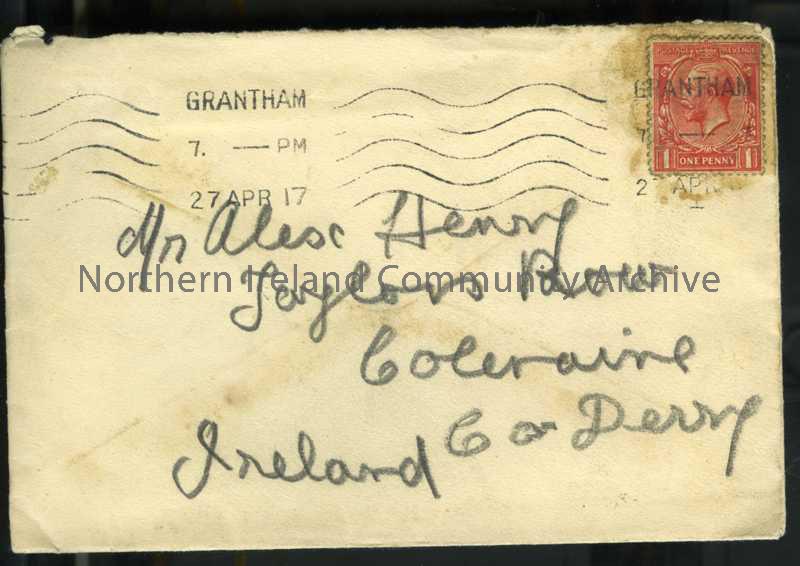 POSTAGE REVENUE
GRANTHAM
GRANTHAM
7. — PM
7. —
27 APR 17
2 APR
1 ONE PENNY 1
Mr Alex Henry
Northern Ireland Community Archive
Taylors Row
Coleraine
Co Derry
Ireland